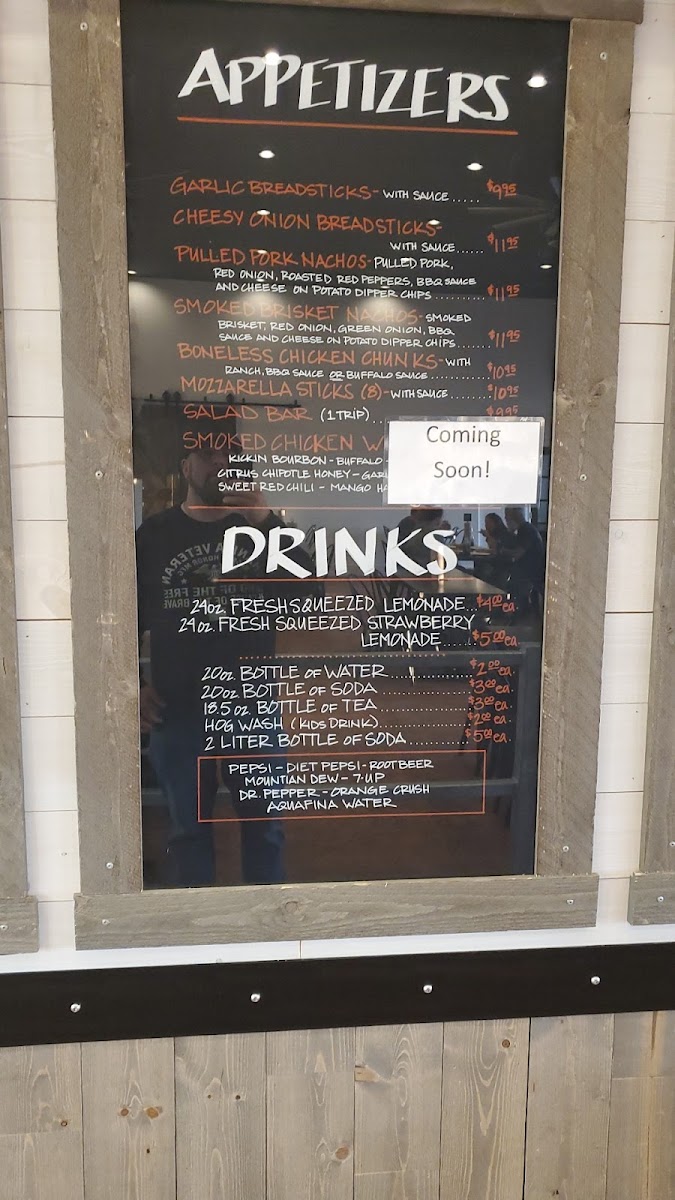 APPETIZERS
GARLIC BREADSTICKS - WITH SAUCE..... $9.95
CHEESY ONION BREADSTICKS-
WITH SAUCE...... $11.95
PULLED PORK NACHOS- PULLED PORK,
RED ONION, ROASTED RED PEPPERS, BBQ SAUCE
AND CHEESE ON POTATO DIPPER CHIPS .......... $11.95
SMOKED BRISKET NACHOS- SMOKED
BRISKET, RED ONION, GREEN ONION, BBQ
SAUCE AND CHEESE ON POTATO DIPPER CHIPS..... $11.95
BONELESS CHICKEN CHUNKS- WITH
RANCH, BBQ SAUCE OR BUFFALO SAUCE ........... $10.95
MOZZARELLA STICKS (8) - WITH SAUCE ........ $10.95
SALAD BAR (1 TRIP).. $9.95
SMOKED CHICKEN W
KICKIN BOURBON - BUFFALO -
CITRUS CHIPOTLE HONEY - GAR
SWEET RED CHILI - MANGO HA
Coming
Soon!
DRINKS
24oz. FRESH SQUEEZED LEMONADE... $4.00 ea.
24oz. FRESH SQUEEZED STRAWBERRY
LEMONADE....... $5.00 ea.
20oz. BOTTLE OF WATER.............. $2.00 ea.
20oz. BOTTLE OF SODA ............... $3.00 ea.
18.5 oz. BOTTLE OF TEA............... $3.00 ea.
HOG WASH (KIDS DRINK)............... $2.00 ea.
2 LITER BOTTLE OF SODA........... $5.00 ea.
PEPSI - DIET PEPSI - ROOT BEER
MOUNTIAN DEW - 7-UP
DR. PEPPER - ORANGE CRUSH
AQUAFINA WATER